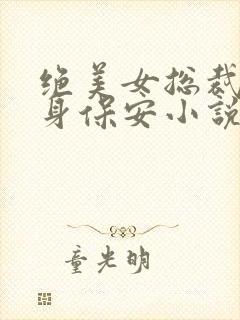 绝美女总裁
身保安小说
童光明